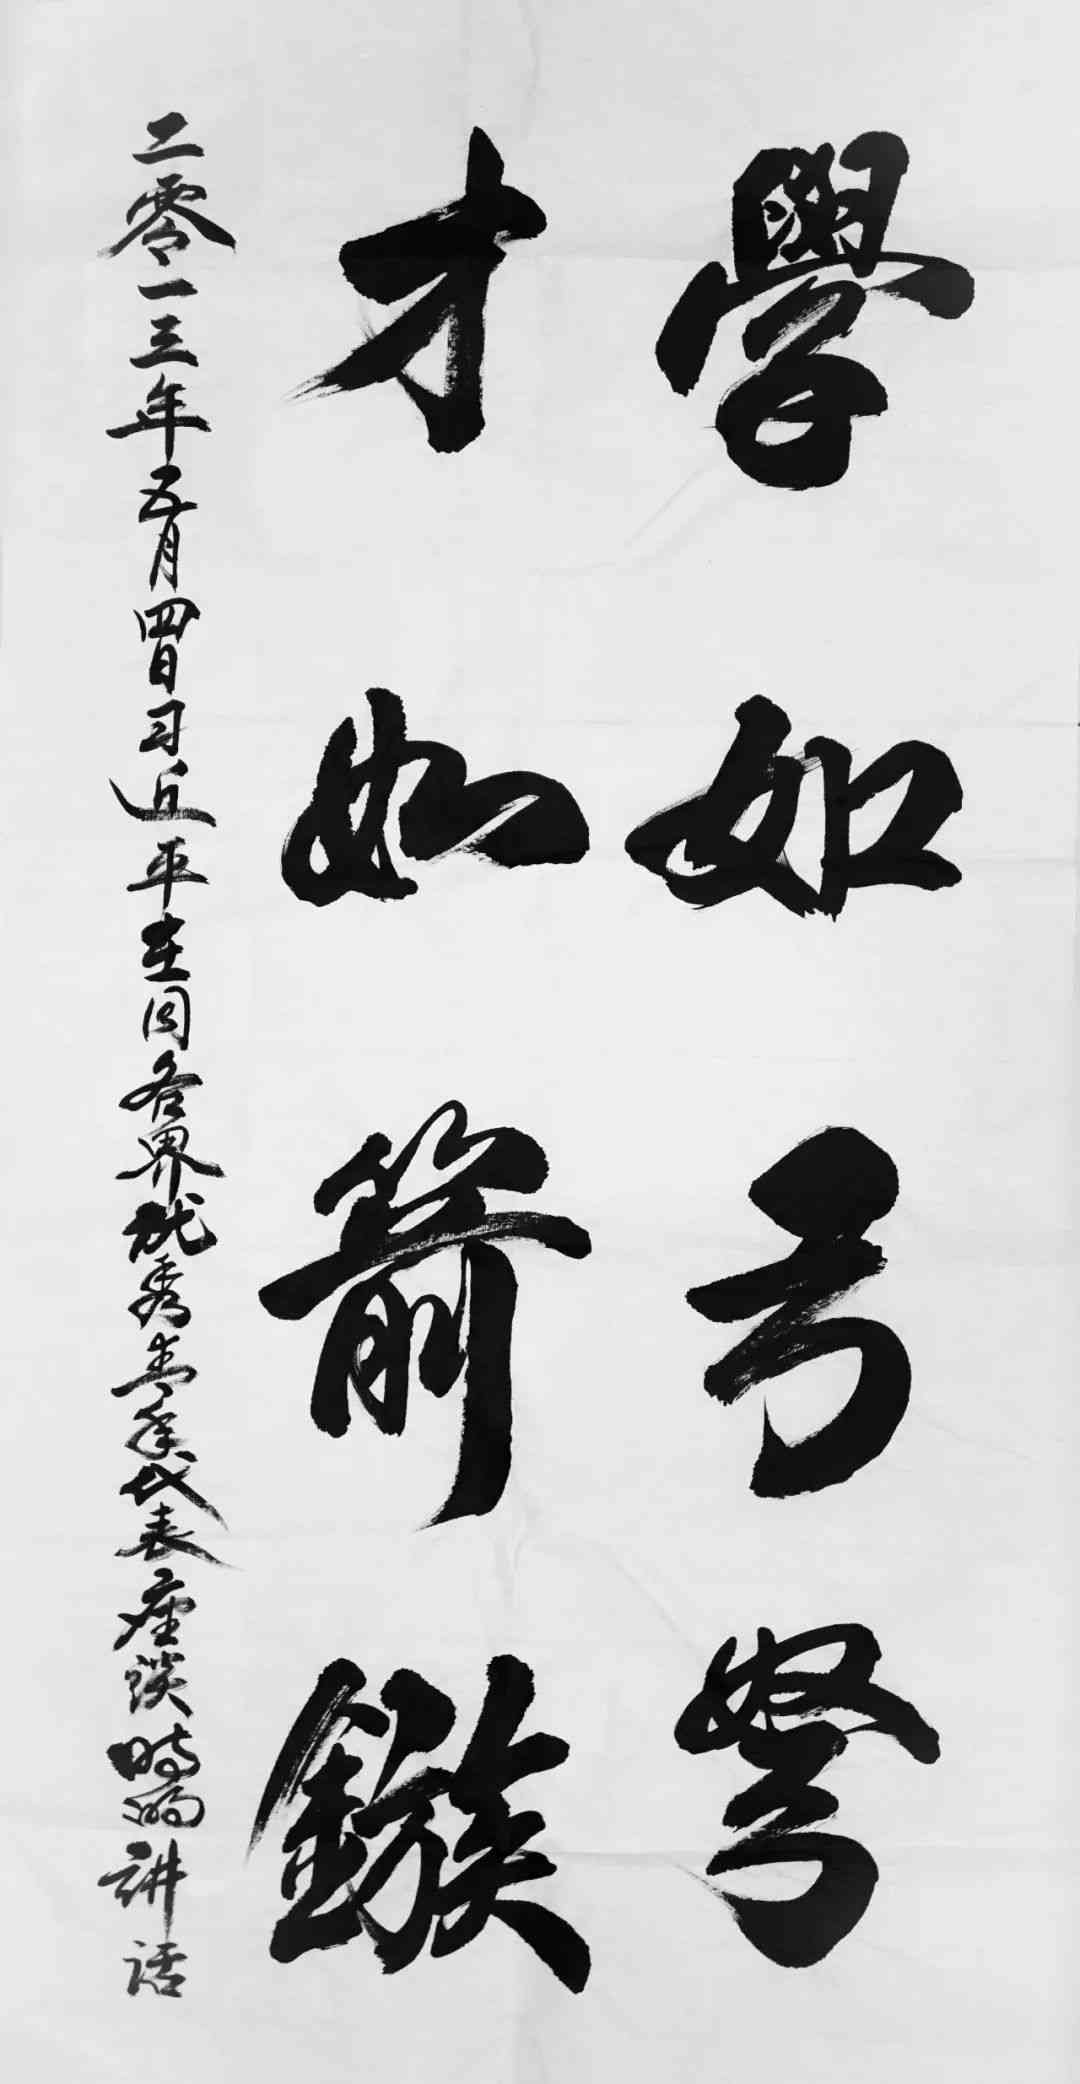 學如弓弩
才如箭鏃
二零一三年五月四日习近平在同各界优秀青年代表座谈时的讲话